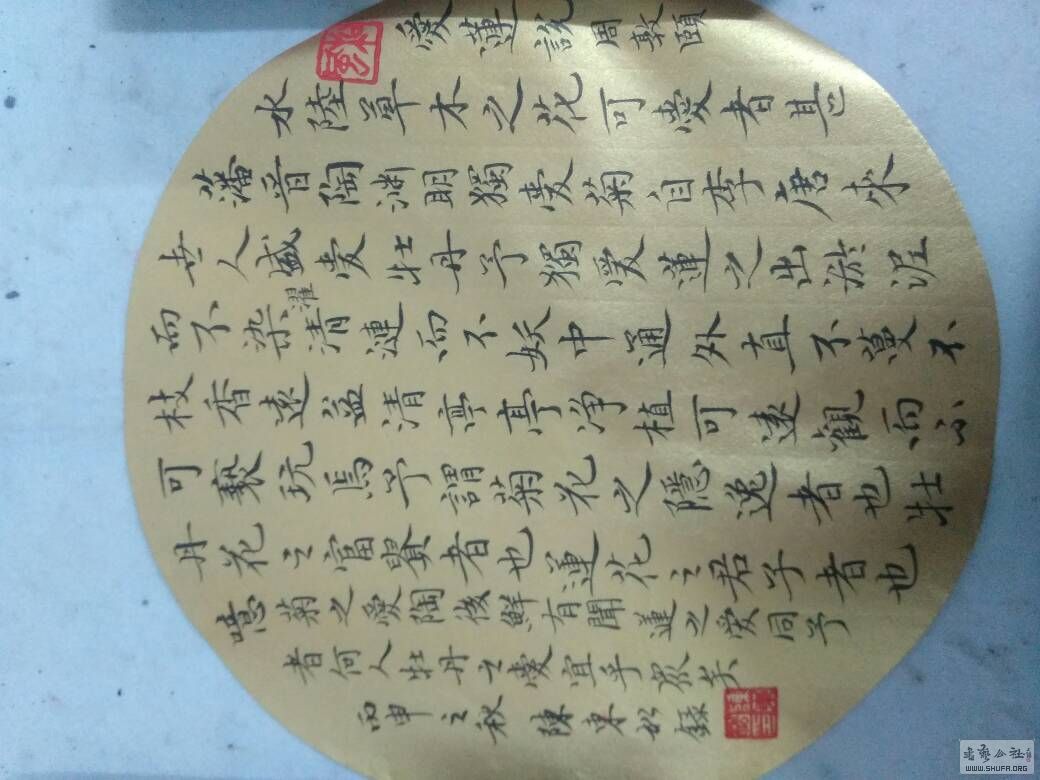 愛蓮說 周敦頤
水陸草木之花可愛者甚
藩晋陶渊明獨愛菊自李唐来
世人盛爱牡丹予獨爱蓮之出淤泥
而不染濯清漣而不妖中通外直不蔓不
枝香遠益清亭亭净植可遠觀而不
可褻玩焉予謂菊花之隱逸者也牡
丹花之富貴者也蓮花之君子者也
噫菊之愛陶後鮮有聞蓮之爱同予
者何人牡丹之愛宜乎眾矣
丙申之秋 陳東錄
書藝公社
WWW.SHUFA.ORG